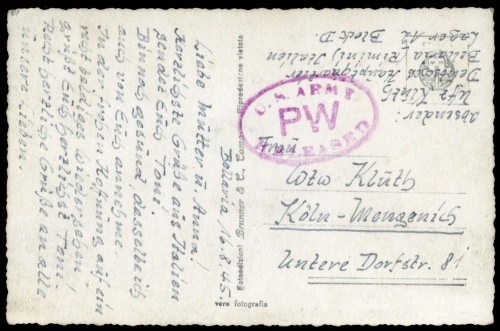 Bellaria 16.8.45.
Liebe Mutter u. Anna!
Herzlichste Grüße aus Italien
sendet Euch Toni.
Bin noch gesund, dasselbe ich
auch von Euch annehme.
In der frohen Hoffnung auf ein
recht baldiges Wiedersehen!
grüßt Euch herzlichst Toni.
Recht herzliche Grüße an alle
unsere Lieben.
Fotoedizioni Brunner & C., Como Riproduzione vietata
vera fotografia
Absender:
Uffz Klüth
Deutsches Hauptquartier
Bellaria (Rimini) Italien
Lager 12
Block D.
U.S. ARMY
PW
RELEASED
Frau
Wtw Klüth
Köln-Mengenich
Untere Dorfstr. 81